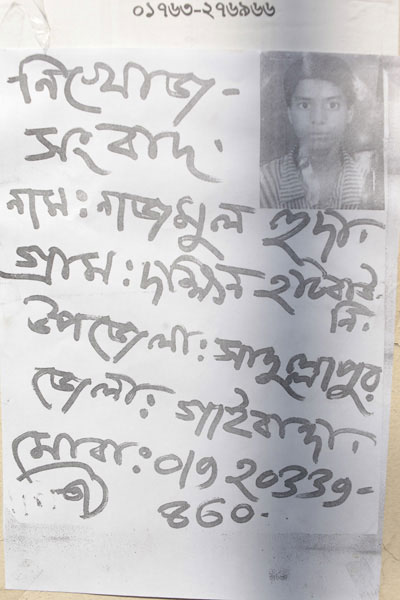 ০১৭৬৩-২৭৬৯৬৬
নিখোজ -
সংবাদ
নাম: নাজমুল হুদা
গ্রাম: দক্ষিন হাটবাই
নি.
উপজেলা: সাদুল্লাপুর
জেলা: গাইবান্ধা
মোবা: ০১৭২০৩৩৭-
৪৬০.